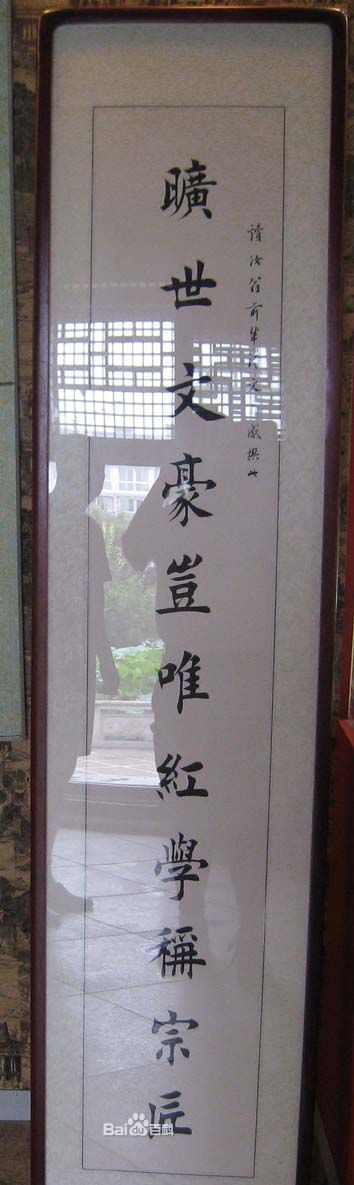 讀汝翁前輩詩文感撰此
曠世文豪豈唯紅學稱宗匠
Baidu百科